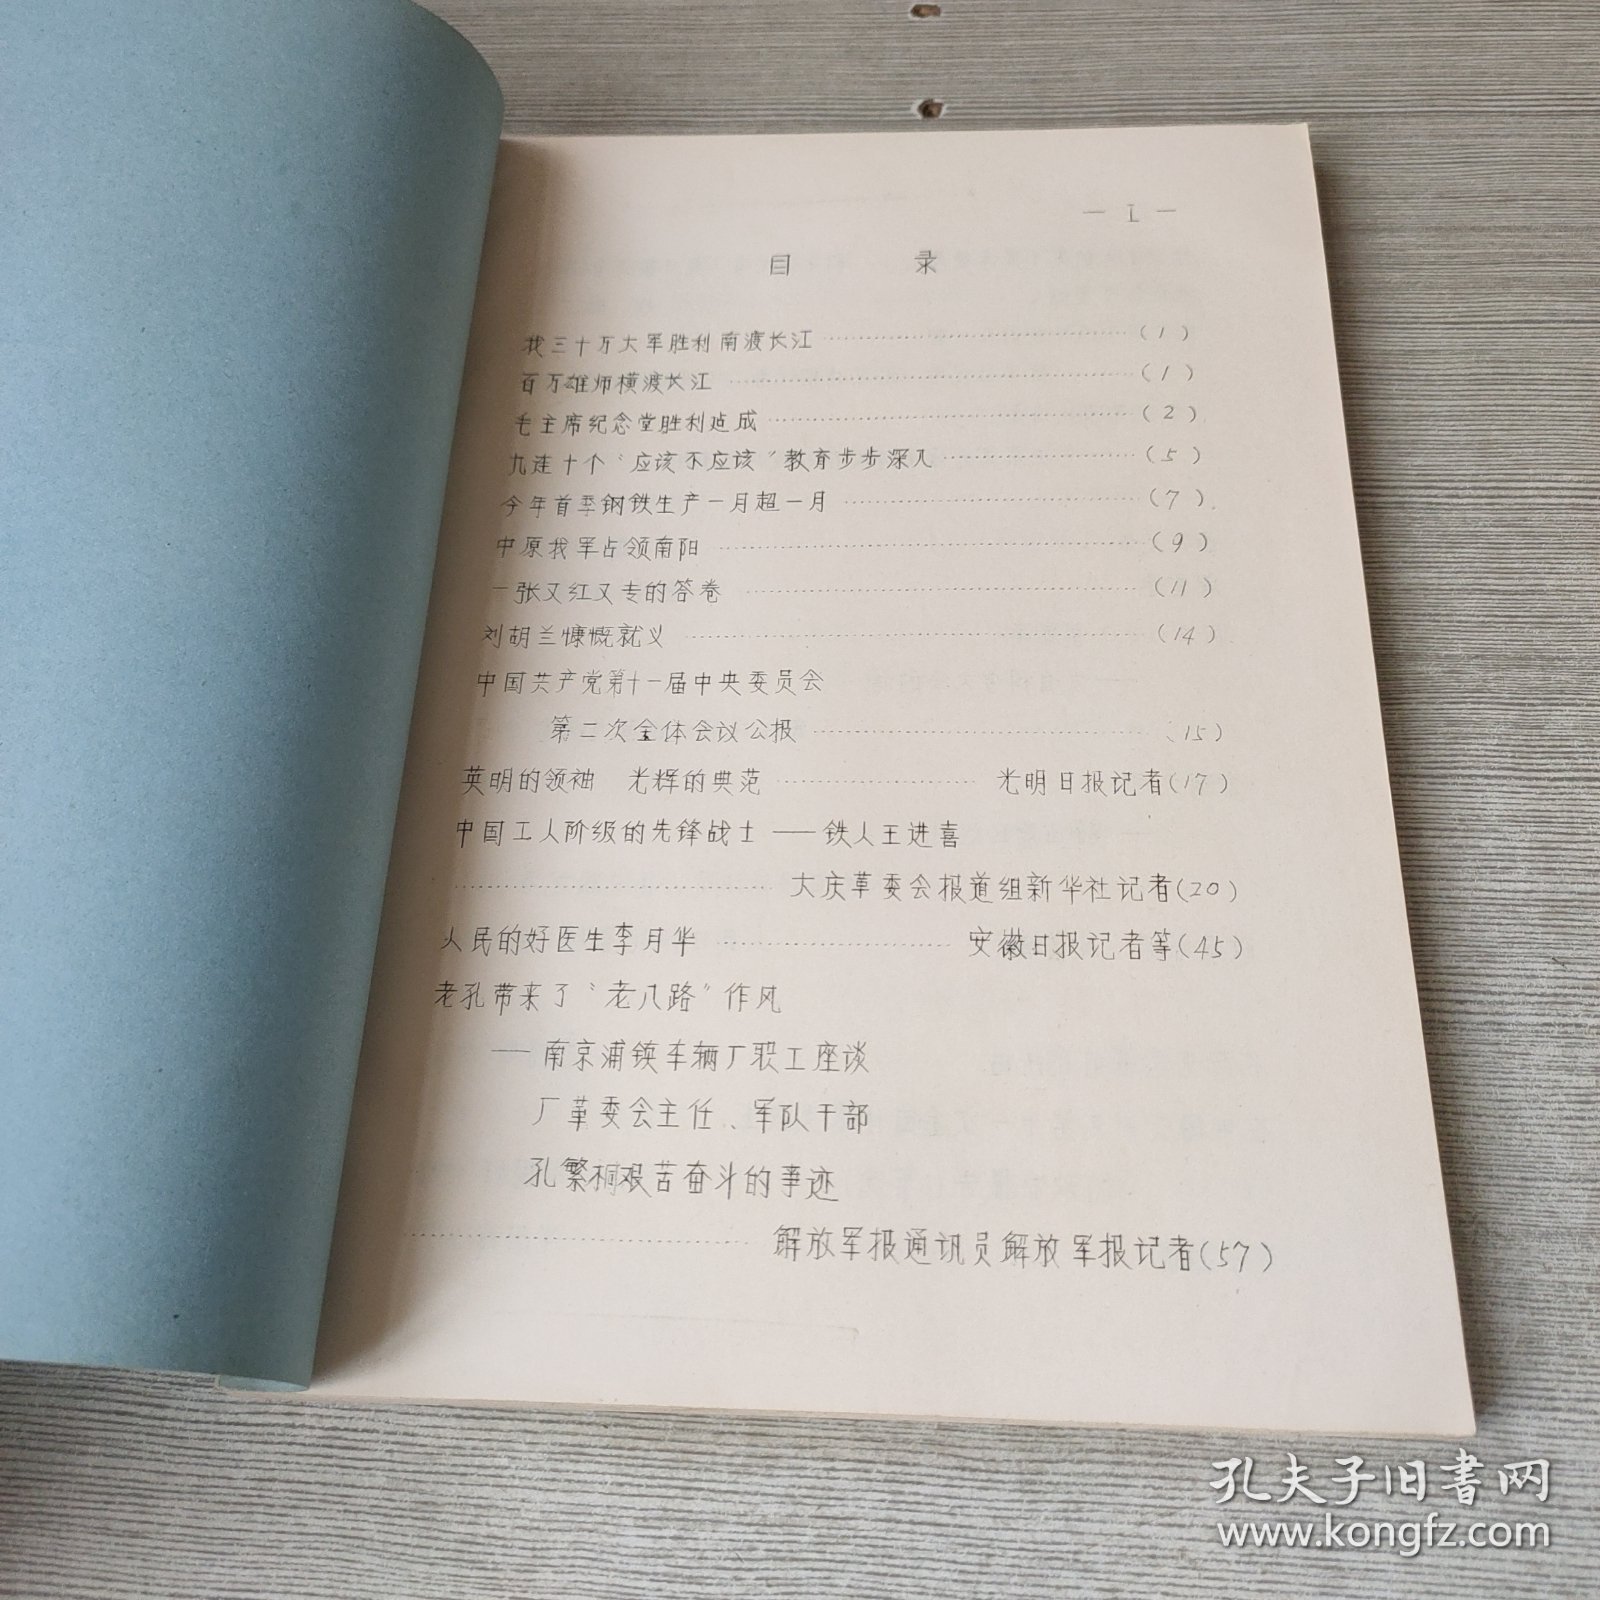 — I —
目 录
我三十万大军胜利南渡长江……(1)
百万雄师横渡长江……(1)
毛主席纪念堂胜利造成……(2)
九连十个“应该不应该”教育步步深入……(5)
今年首季钢铁生产一月超一月……(7)
中原我军占领南阳……(9)
一张又红又专的答卷……(11)
刘胡兰慷慨就义……(14)
中国共产党第十一届中央委员会
第二次全体会议公报……(15)
英明的领袖 光辉的典范……光明日报记者(17)
中国工人阶级的先锋战士——铁人王进喜
……大庆革委会报道组新华社记者(20)
人民的好医生李月华……安徽日报记者等(45)
老孔带来了“老八路”作风
——南京浦镇车辆厂职工座谈
厂革委会主任、军队干部
孔繁桐艰苦奋斗的事迹
……解放军报通讯员解放军报记者(57)
孔夫子旧书网
www.kongfz.com